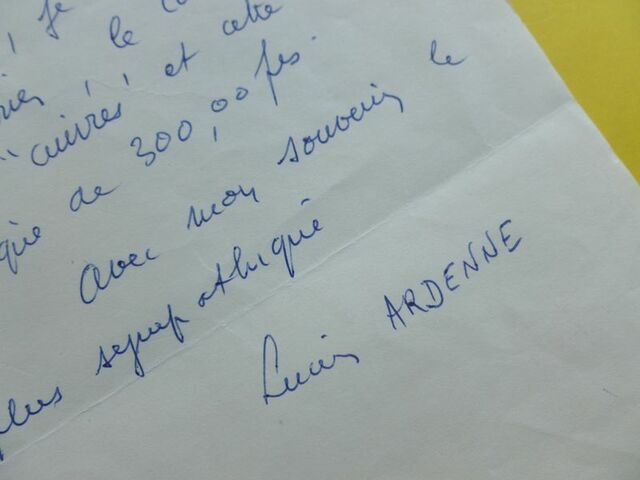 je
le
"cuivrés" et cette
que de 300,00 frs.
avec mon souvenir le
plus sympathique
Lucien ARDENNE